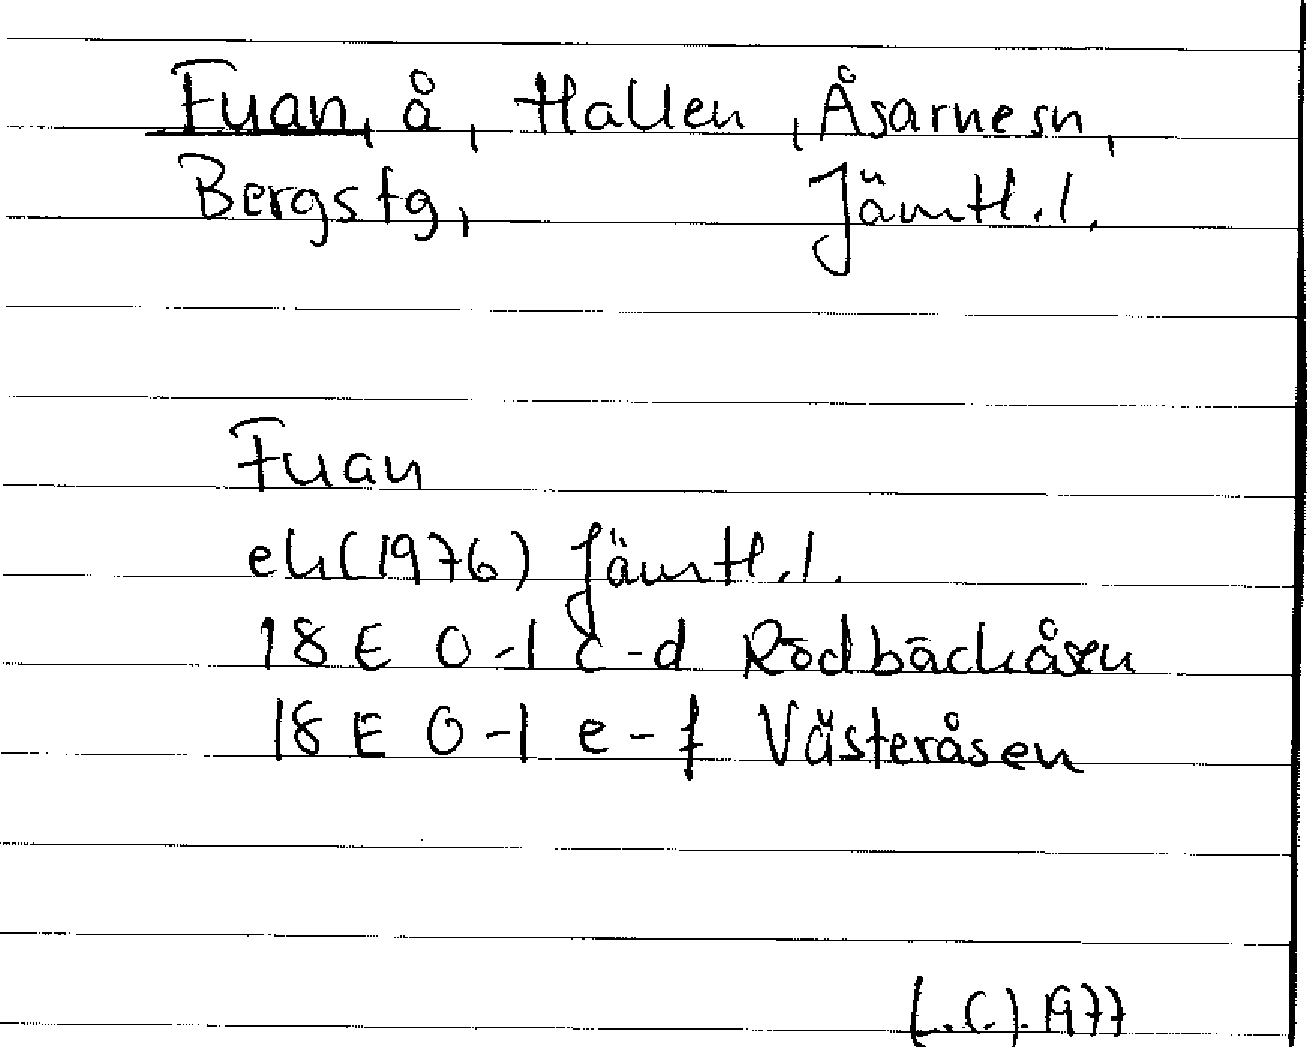 Fuan, å, Hallen, Åsarnesn,
Bergs tg, Jämtl.l.
Fuan
ek(1976) Jämtl.l.
18 E 0-1 c-d Rödbäckåsen
18 E 0-1 e-f Västeråsen
1977